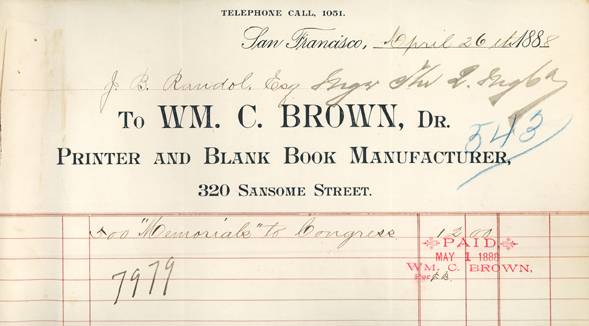 TELEPHONE CALL, 1051.
San Francisco, April 26th 1888
J. B. Randol, Esq Mngr The Q. Mng Co
To WM. C. BROWN, Dr.
543
PRINTER AND BLANK BOOK MANUFACTURER,
320 SANSOME STREET.
500 "Memorials" to Congress 12 00
PAID
MAY 1 1888
WM. C. BROWN.
Per
7979